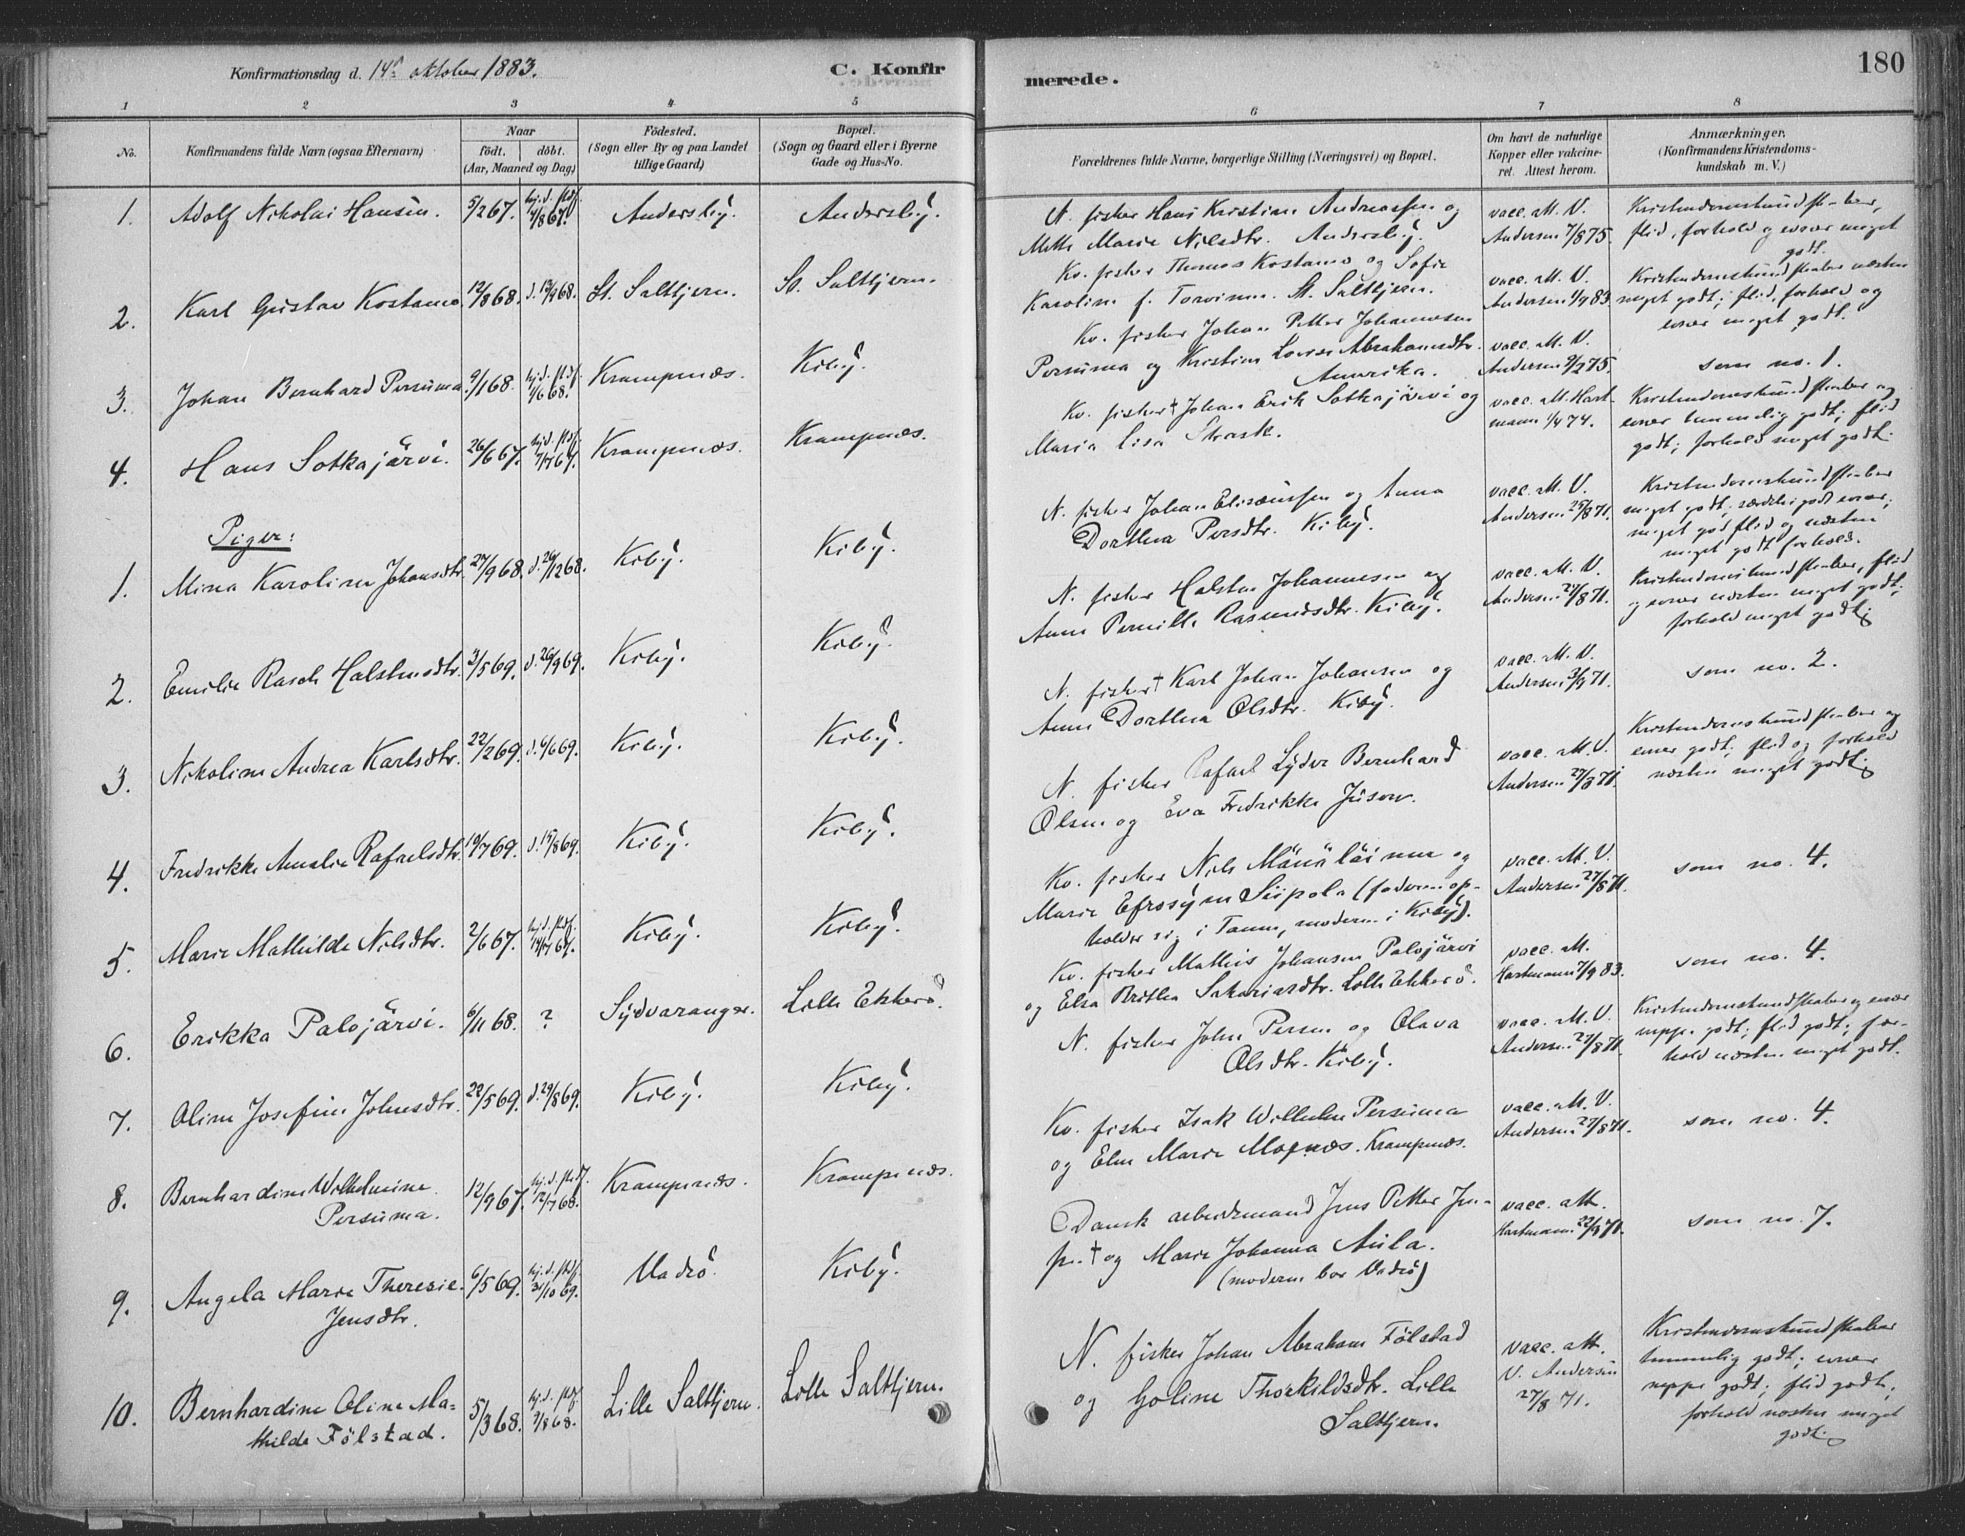 Konfirmationsdag d. 14de oktober 1883.
C. Konfir
merede.
180
1 2 3 4 5 6 7 8
No.
Konfirmandens fulde Navn (ogsaa Efternavn)
Naar
födt. döbt.
(Aar, Maaned og Dag)
Födested.
(Sogn eller By og paa Landet
tillige Gaard)
Bopæl.
(Sogn og Gaard eller i Byerne
Gade og Hus-No.
Forældrenes fulde Navne, borgerlige Stilling (Næringsvei) og Bopæl.
Om havt de naturlige
Kopper eller vakcine-
ret. Attest herom.
Anmærkninger.
(Konfirmandens Kristendoms-
kundskab m. V.)
1. Adolf Nikolai Hansen. 5/2 67. hj.d. st.df. 4/8 67. Andersby. Andersby.
N. fisker Hans Kristian Andreassen og
Mette Marie Nilsdtr. Andersby.
vacc. att. V.
Andersen 7/8 75.
Kristendomskundskaber,
flid, forhold og evner meget
godt.
2. Karl Gustav Kostamo 12/8 68. d. 13/9 68. St. Saltjern. St. Saltjern.
Kv. fisker Thomas Kostamo og Sofie
Karoline f. Torvinen. St. Saltjern.
vacc. att. V.
Andersen 1/9 83.
Kristendomskundskaber næsten
meget godt; flid, forhold og
evner meget godt.
3. Johan Bernhard Persuma 9/1 68. hj.d. st.df. 1/6 68. Krampenæs. Kiby.
Kv. fisker Johan Petter Johannesen
Persuma og Kristine Lovise Abrahamsdtr.
Amerika.
vacc. att. V.
Andersen 9/2 75.
som no. 1.
4. Hans Sotkajärvi. 26/6 67. hj.d. st.df. 7/7 67. Krampenæs. Krampenæs.
Kv. fisker † Johan Erik Sotkajärvi og
Maria Lisa Strask.
vacc. att. Hart-
mann 1/9 74.
Kristendomskundskaber og
evner temmelig godt; flid
godt; forhold meget godt.
Piger:
1. Mina Karoline Johansdtr. 27/9 68. d. 26/12 68. Kiby. Kiby.
N. fisker Johan Elisæussen og Anna
Dorthea Persdtr. Kiby.
vacc. att. V.
Andersen 25/8 71.
Kristendomskundskaber
meget godt; særdeles godt evner;
meget god flid og næsten
meget godt forhold.
2. Emilie Rasch Halstensdtr. 3/5 69. d. 26/9 69. Kiby. Kiby.
N. fisker Halsten Johannesen og
Anne Pernille Rasmusdtr. Kiby.
vacc. att. V.
Andersen 27/8 71.
Kristendomskundskaber, flid
og evner næsten meget godt;
forhold meget godt.
3. Nikoline Andrea Karlsdtr. 22/2 69. d. 6/6 69. Kiby. Kiby.
N. fisker † Karl Johan Johansen og
Anne Dorthea Olsdtr. Kiby.
vacc. att. V.
Andersen 3/9 71.
som no. 2.
4. Fredrikke Amalie Rafaelsdtr. 10/7 69. d. 15/8 69. Kiby. Kiby.
N. fisker Rafael Lyder Bernhard
Olsen og Eva Fredrikke Juson.
vacc. att. V.
Andersen 27/8 71.
Kristendomskundskaber og
evner godt; flid og forhold
næsten meget godt.
5. Marie Mathilde Nilsdtr. 2/6 67. hj.d. st.df. 14/7 67. Kiby. Kiby.
Kv. fisker Nils Mänäläinen og
Marie Efrosyne Siipola (faderen op-
holder sig i Tanen, moderen i Kiby).
vacc. att. V.
Andersen 27/8 71.
som no. 4.
6. Erikka Palojärvi. 6/11 68. ? Sydvaranger. Lille Ekkerö.
Kv. fisker Mathis Johansen Palojärvi
og Elsa Brithe Sakariasdtr. Lille Ekkerö.
vacc. att.
Hartmann 7/9 83.
som no. 4.
7. Oline Josefine Johnsdtr. 22/5 69. d. 29/8 69. Kiby. Kiby.
N. fisker John Persen og Olava
Olsdtr. Kiby.
vacc. att. V.
Andersen 27/8 71.
Kristendomskundskaber og evner
neppe godt; flid godt; for-
hold næsten meget godt.
8. Bernhardine Wilhelmine
Persuma. 12/9 67. hj.d. st.df. 12/7 68. Krampenæs. Krampenæs.
Kv. fisker Isak Wilhelm Persuma
og Elen Marie Mognæs. Krampenæs.
vacc. att. V.
Andersen 27/8 71.
som no. 4.
9. Angela Marie Theresie
Jensdtr. 6/5 69. hj.d. st.df. 31/10 69. Vadsö. Kiby.
Dansk arbeidsmand Jens Petter Jep-
pe. † og Marie Johanna Aula.
(moderen bor Vadsö)
vacc. att.
Hartmann 22/9 71.
som no. 7.
10. Bernhardine Oline Ma-
thilde Fölstad. 5/3 68. hj.d. st.df. 2/8 68. Lille Saltjern. Lille Saltjern.
N. fisker Johan Abraham Fölstad
og Goline Thorkildsdtr. Lille
Saltjern.
vacc. att.
V. Andersen
27/8 71.
Kristendomskundskaber
temmelig godt; evner
neppe godt; flid godt;
forhold næsten meget
godt.